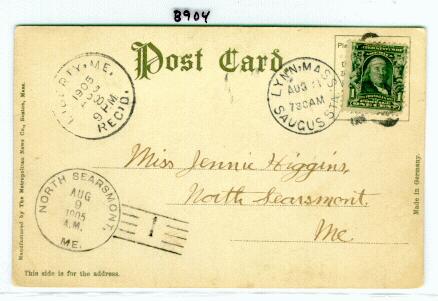 8904
Post Card
LIBERTY, ME.
1905
9 M
REC'D.
LYNN, MASS
AUG
730AM
SAUGUS STA.
Miss Jennie Higgins,
North Searsmont.
Me.
NORTH SEARSMONT,
AUG
9
1905
A.M.
ME.
1
Manufactured by The Metropolitan News Co., Boston, Mass.
Made in Germany.
This side is for the address.